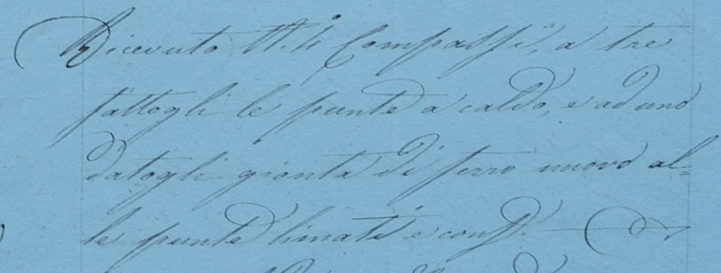 Ricevuto N. 4 Compassi, a tre
fattogli le punte a caldo, e ad uno
datogli gionta di ferro nuovo al=
le punte limati e cons.